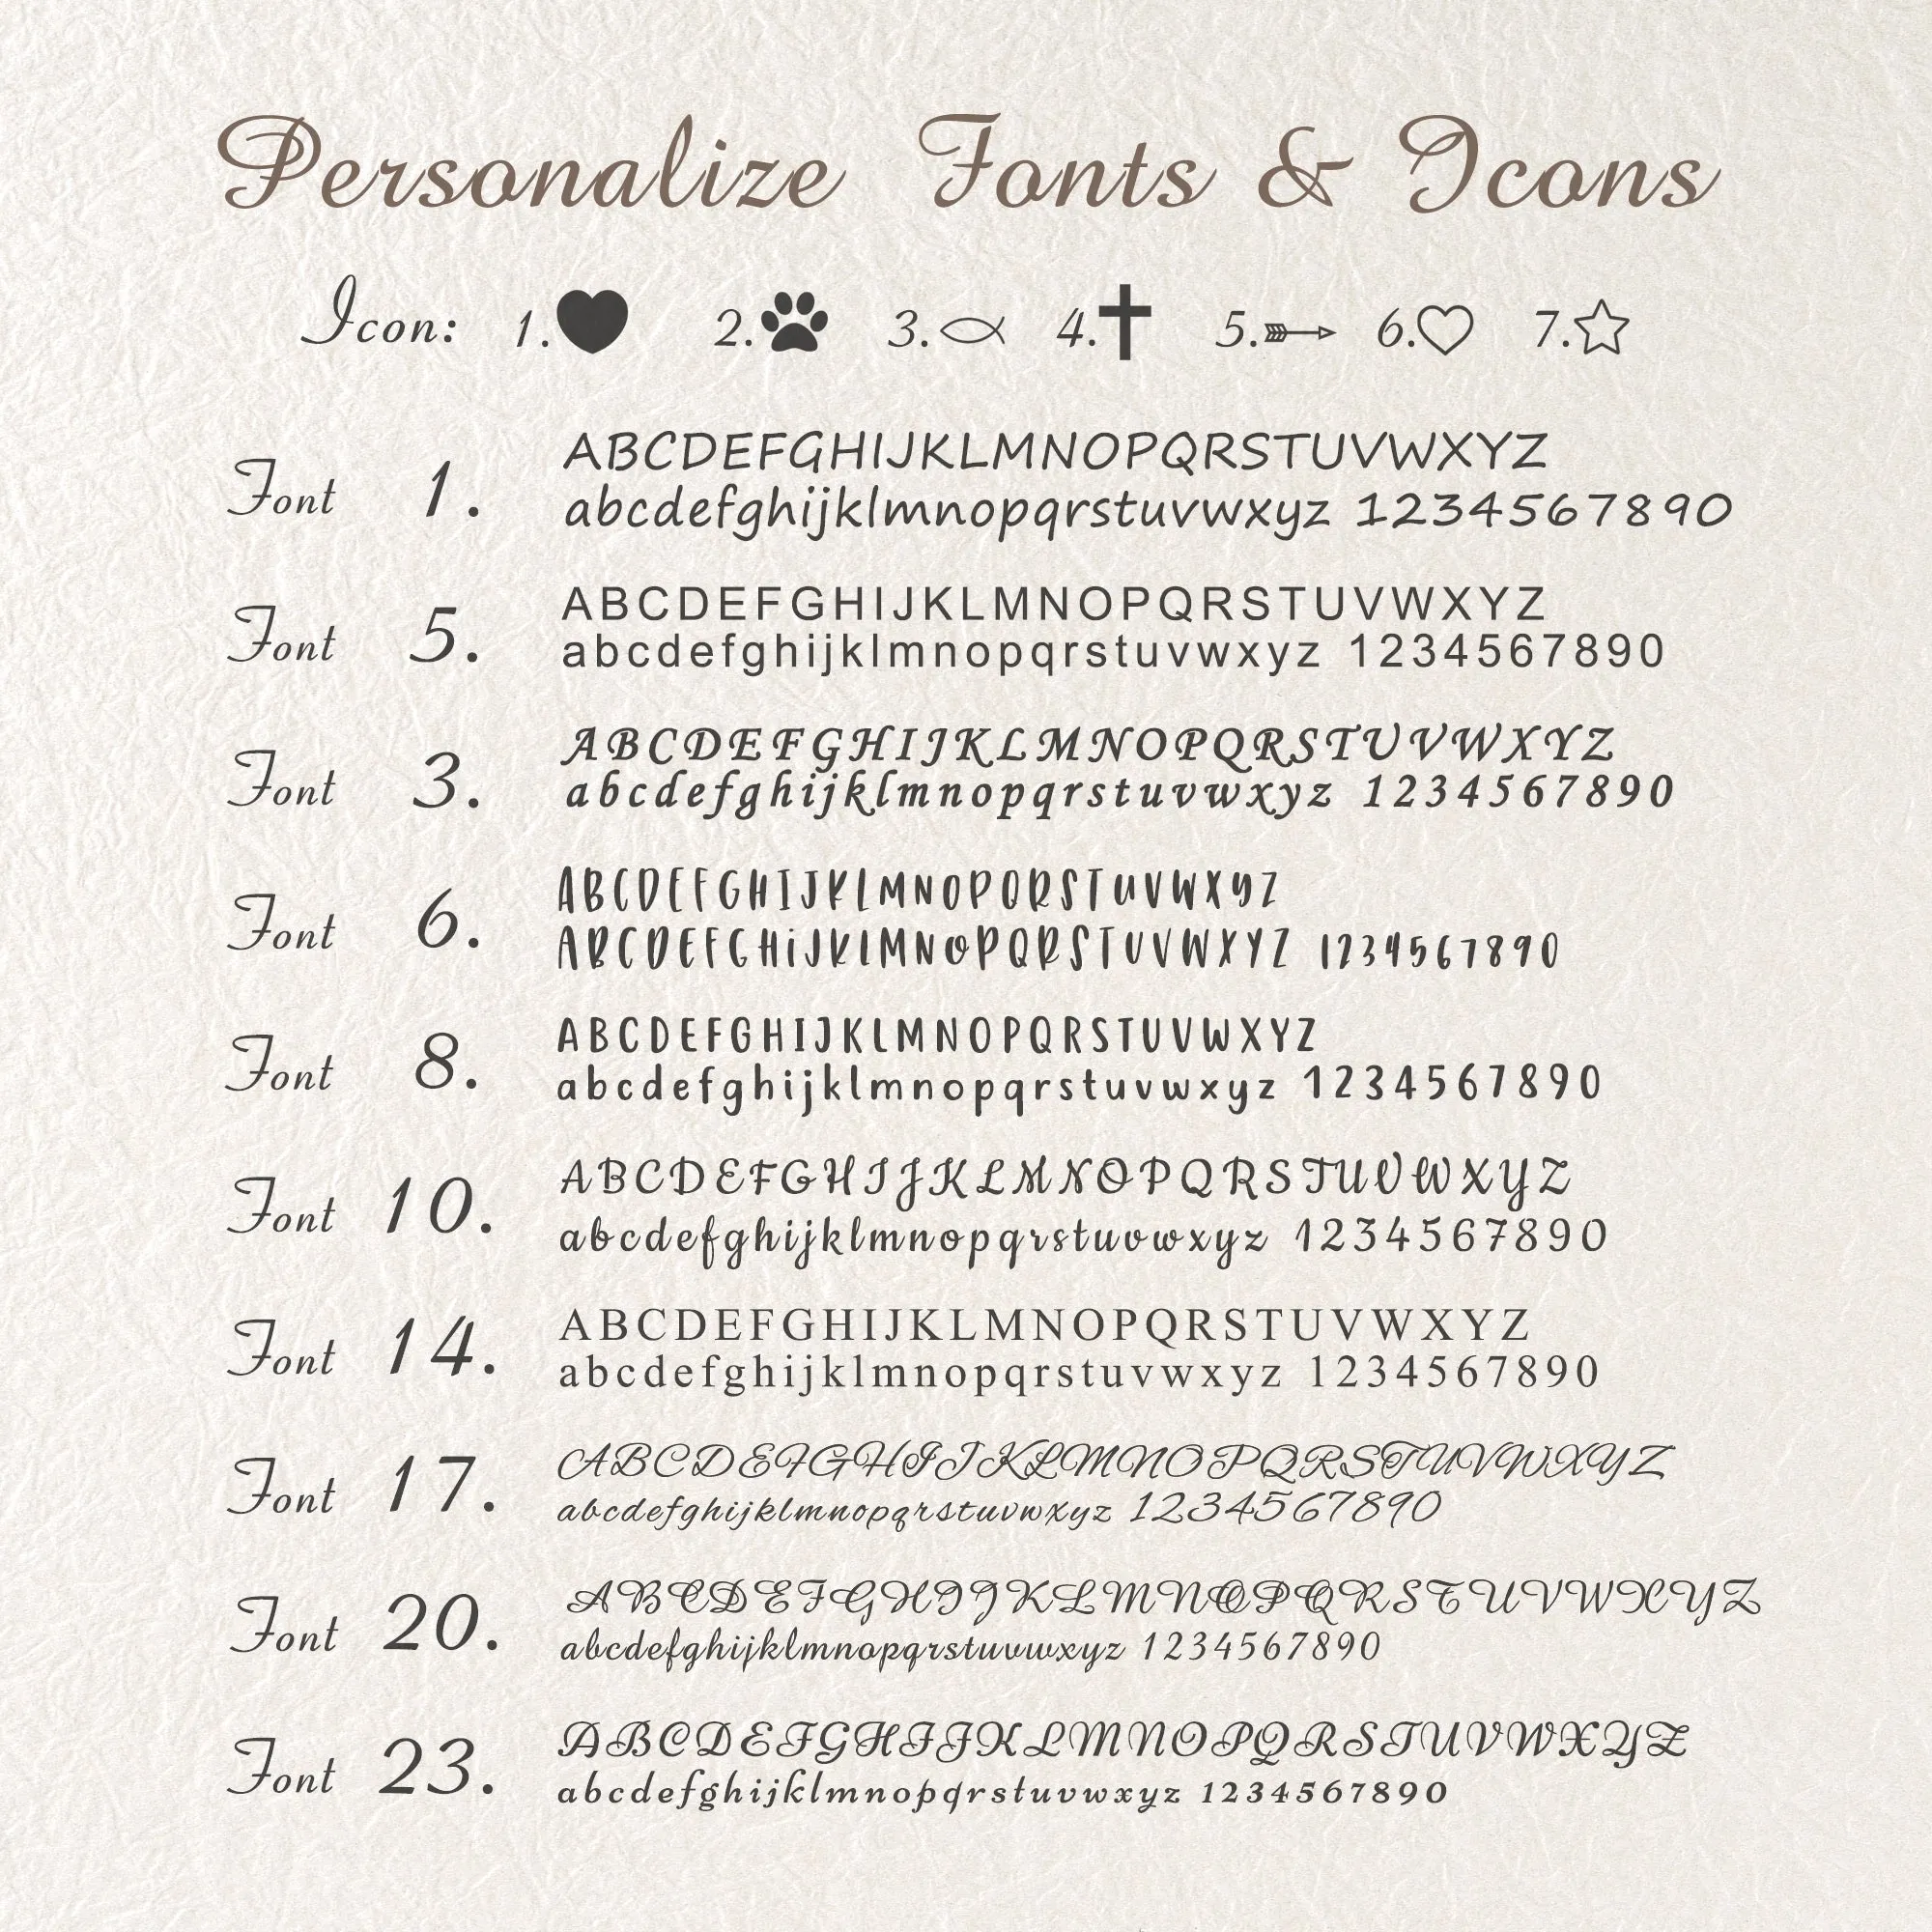 Personalize Fonts & Icons
Icon: 1. 2. 3. 4. 5. 6. 7.
Font 1. ABCDEFGHIJKLMNOPQRSTUVWXYZ
abcdefghijklmnopqrstuvwxyz 1234567890
Font 5. ABCDEFGHIJKLMNOPQRSTUVWXYZ
abcdefghijklmnopqrstuvwxyz 1234567890
Font 3. ABCDEFGHIJKLMNOPQRSTUVWXYZ
abcdefghijklmnopqrstuvwxyz 1234567890
Font 6. ABCDEFGHIJKLMNOPQRSTUVWXYZ
ABCDEFGHiJKLMNOPQRSTUVWXYZ 1234567890
Font 8. ABCDEFGHIJKLMNOPQRSTUVWXYZ
abcdefghijklmnopqrstuvwxyz 1234567890
Font 10. ABCDEFGHIJKLMNOPQRSTUVWXYZ
abcdefghijklmnopqrstuvwxyz 1234567890
Font 14. ABCDEFGHIJKLMNOPQRSTUVWXYZ
abcdefghijklmnopqrstuvwxyz 1234567890
Font 17. ABCDEFGHIJKLMNOPQRSTUVWXYZ
abcdefghijklmnopqrstuvwxyz 1234567890
Font 20. ABCDEFGHIJKLMNOPQRSTUVWXYZ
abcdefghijklmnopqrstuvwxyz 1234567890
Font 23. ABCDEFGHIJKLMNOPQRSTUVWXYZ
abcdefghijklmnopqrstuvwxyz 1234567890